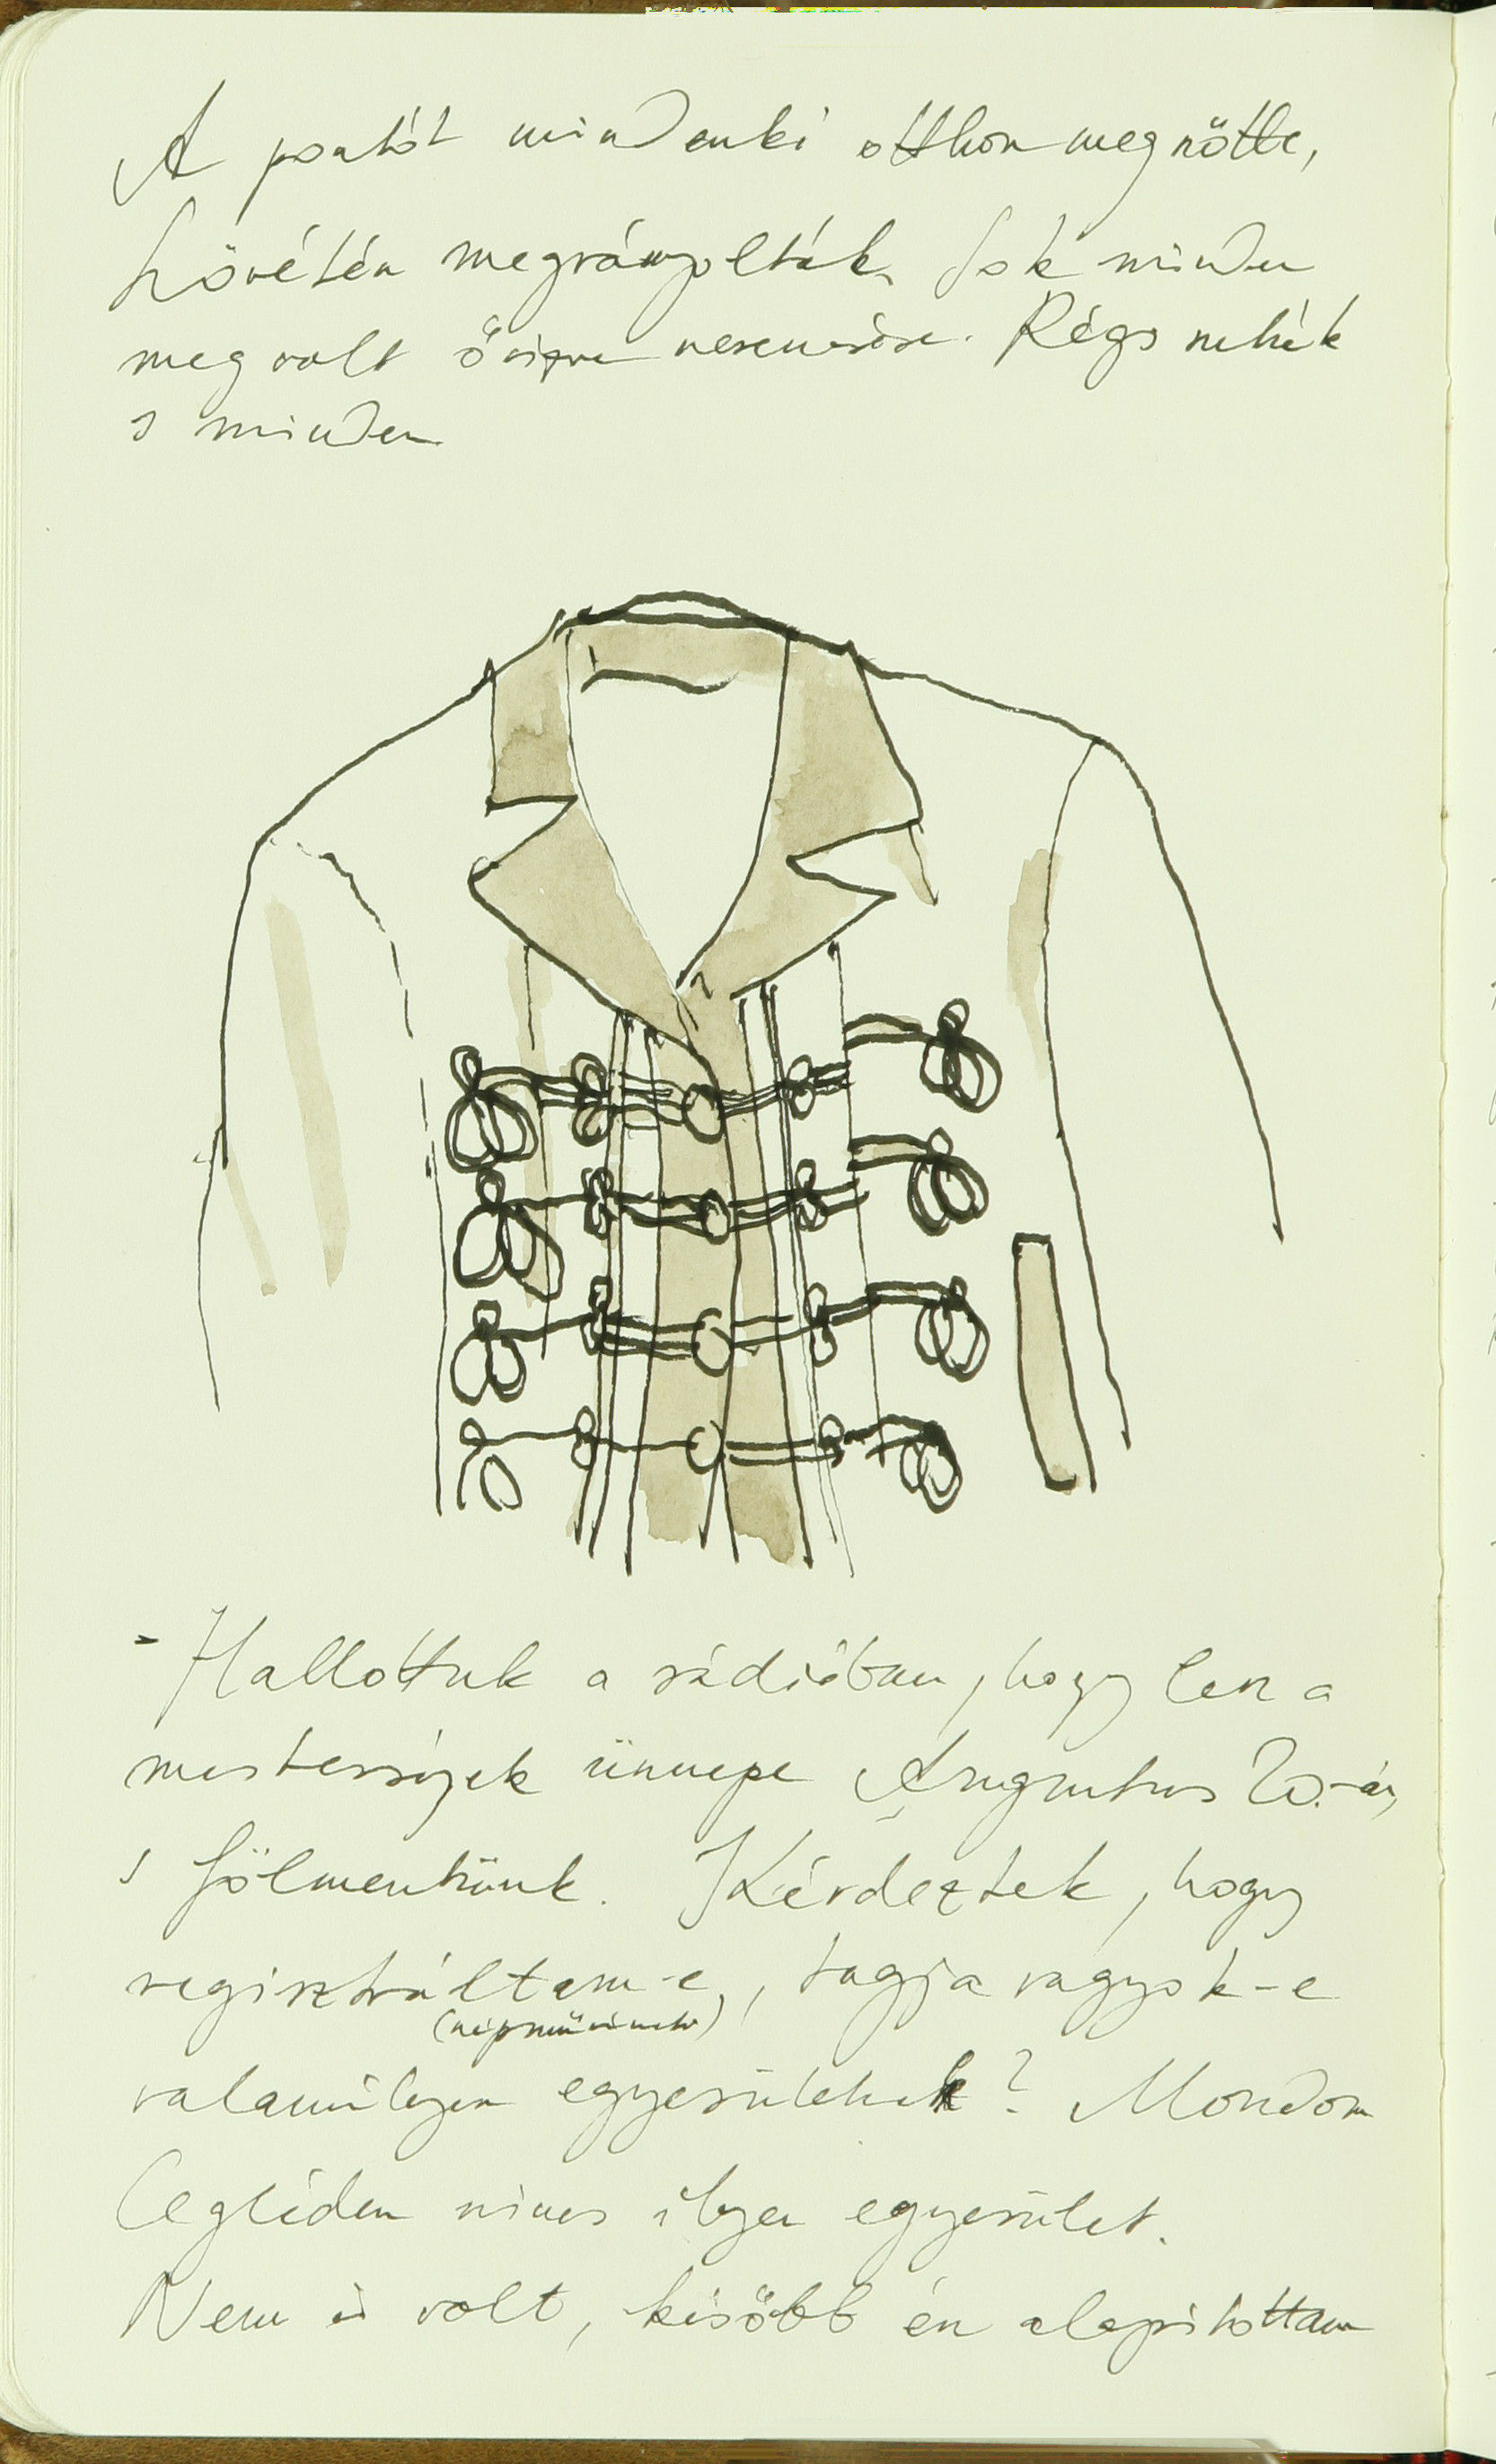 A posztót mindenki otthon megszőtte,
Lövétén megványolták. Sok minden
meg volt őrizve Régi ruhák
s minden
- Hallottuk a rádióban, hogy lesz a
mesterségek ünnepe Augusztus 20.-án,
s fölmentünk. Kérdezték, hogy
regisztráltam-e, tagja vagyok-e
(népművészeti)
valamilyen egyesületnek? Mondom
Cegléden nincs ilyen egyesület.
Nem is volt, később én alapítottam